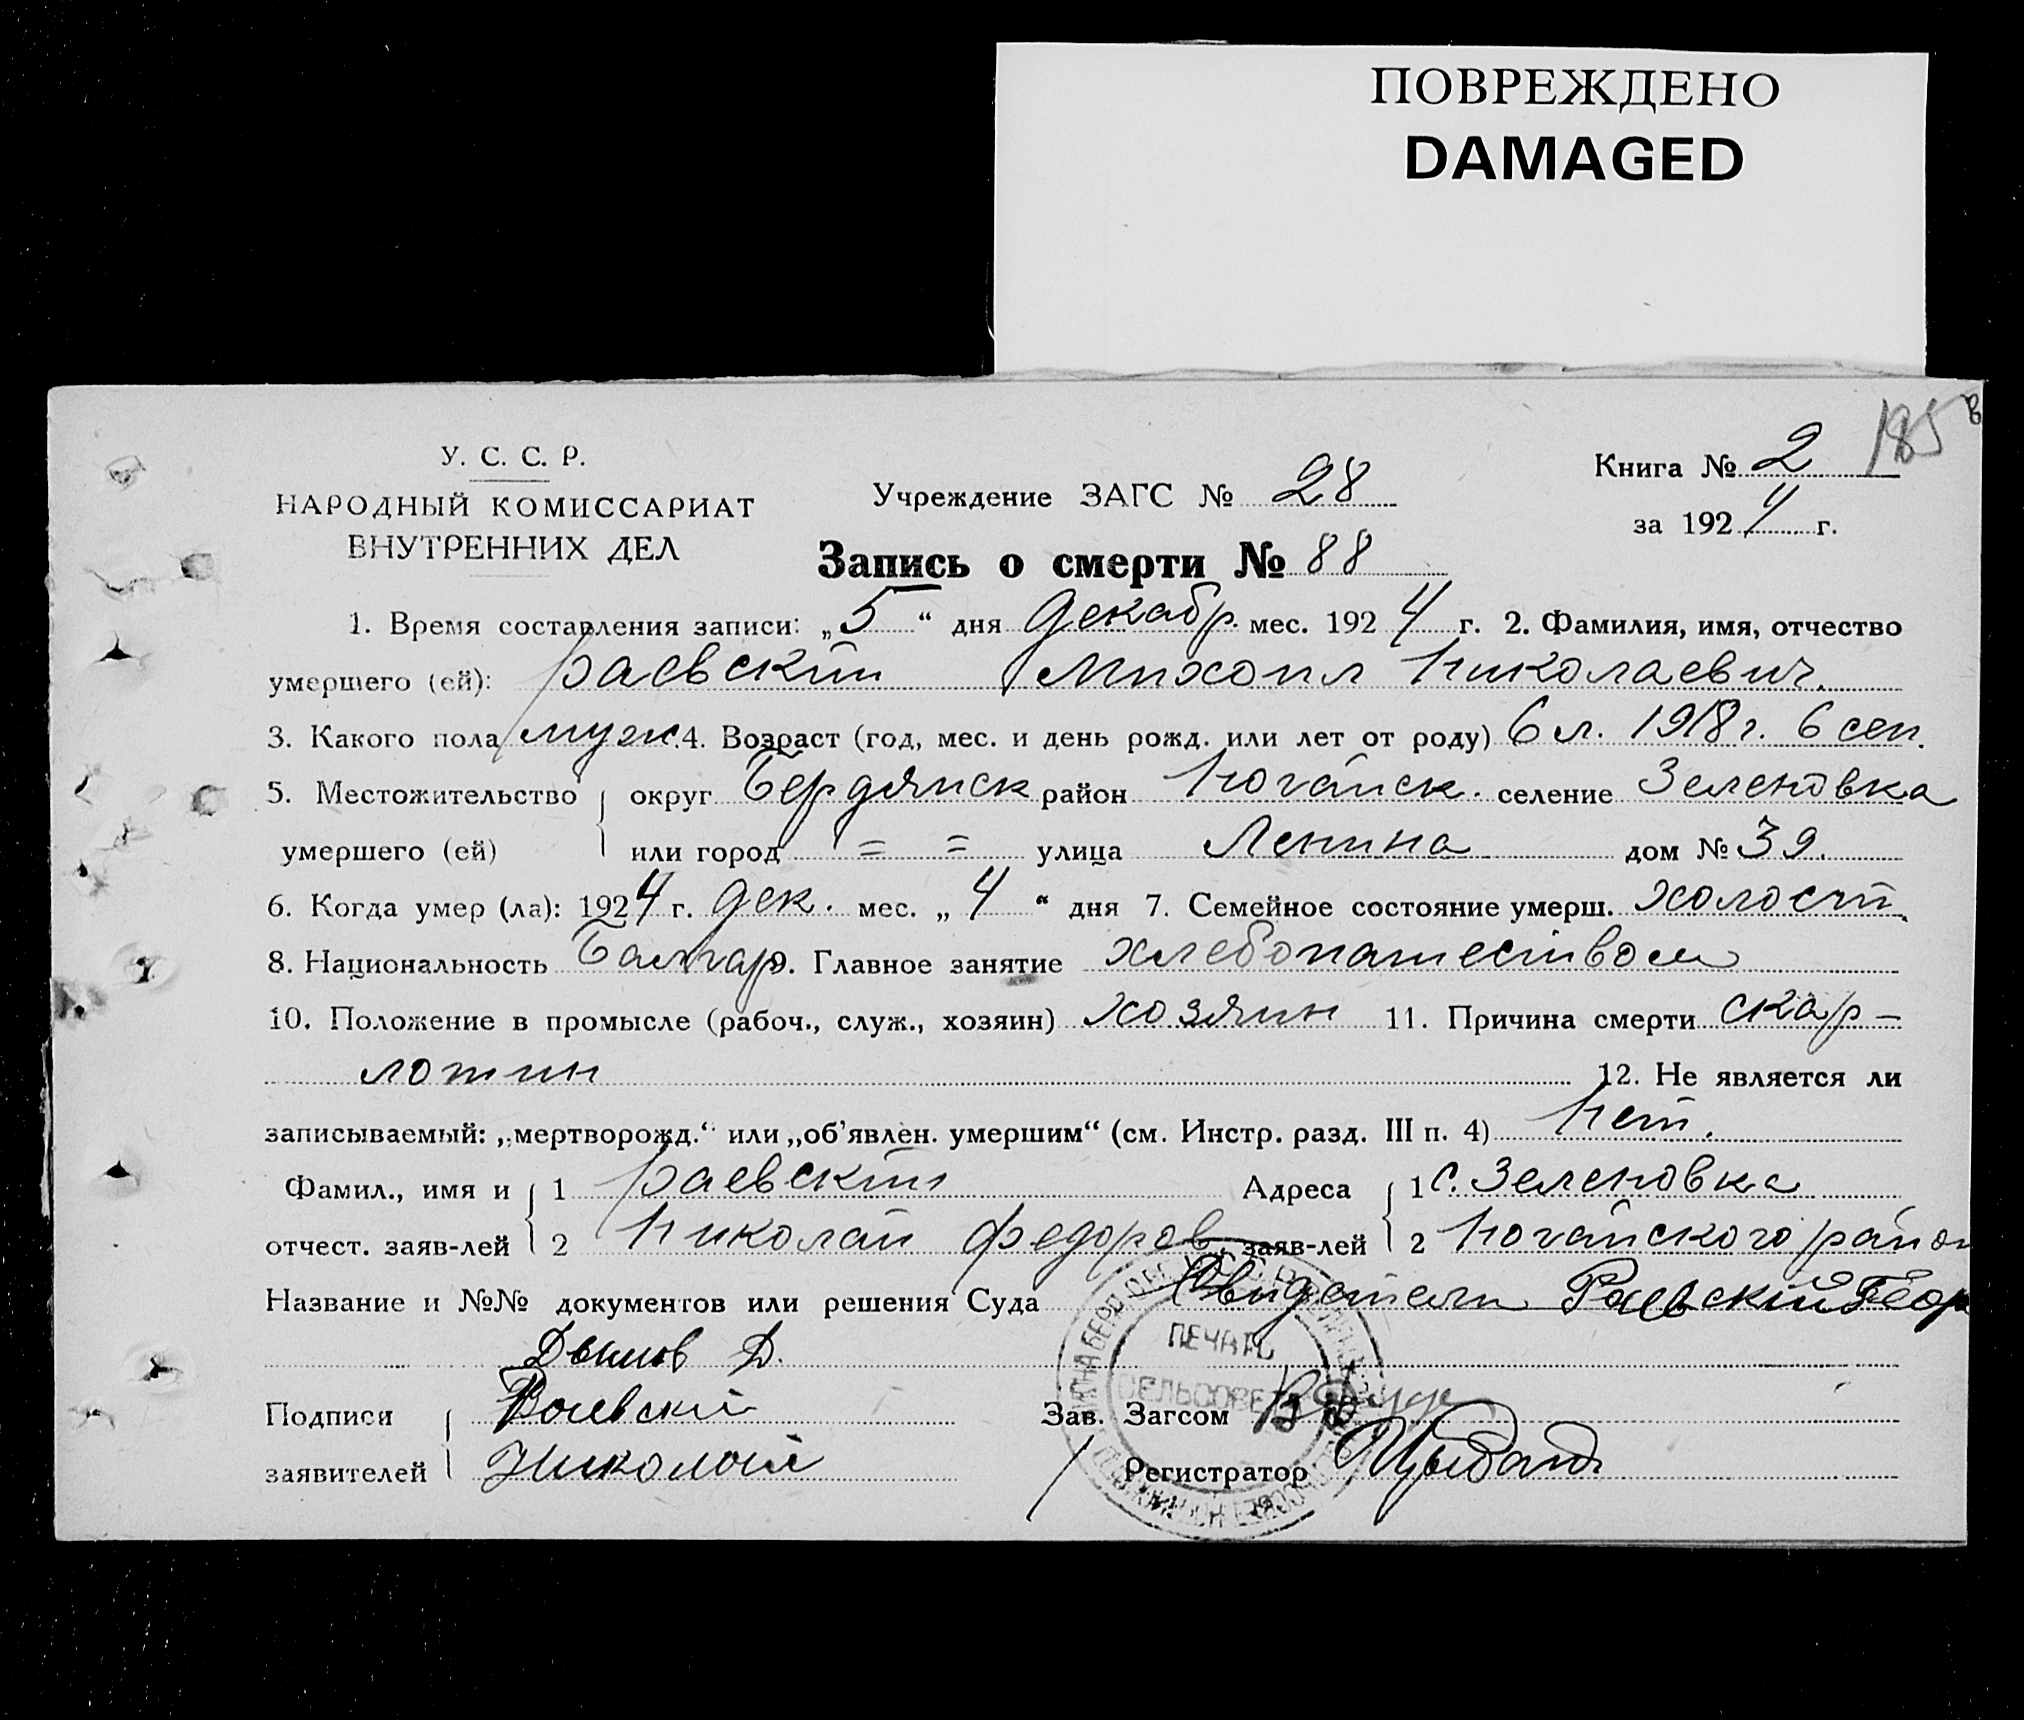 ПОВРЕЖДЕНО
DAMAGED
185 в
У. С. С. Р.
НАРОДНЫЙ КОМИССАРИАТ
ВНУТРЕННИХ ДЕЛ
Учреждение ЗАГС № 28
Книга № 2
за 1924 г.
Запись о смерти № 88
1. Время составления записи: „5“ дня декабр. мес. 1924 г. 2. Фамилия, имя, отчество
умершего (ей): Раевский Михаил Николаевич.
3. Какого пола муж. 4. Возраст (год, мес. и день рожд. или лет от роду) 6 л. 1918 г. 6 сен.
5. Местожительство округ Бердянск район Ногайск. селение Зеленовка
умершего (ей) или город = = улица Ленина дом № 39.
6. Когда умер (ла): 1924 г. дек. мес. „4“ дня 7. Семейное состояние умерш. холост.
8. Национальность Болгар. 9. Главное занятие хлебопашеством
10. Положение в промысле (рабоч., служ., хозяин) хозяин 11. Причина смерти скар-
лотин 12. Не является ли
записываемый: „мертворожд.“ или „об’явлен. умершим“ (см. Инстр. разд. III п. 4) Нет.
Фамил., имя и 1 Раевский Адреса 1 с. Зеленовка
отчест. заяв-лей 2 Николай Федоров. заяв-лей 2 Ногайского район
Название и №№ документов или решения Суда Свидетели Раевский Геор
Дымов Д.
Подписи Раевский Зав. Загсом
заявителей Николай Регистратор
ПЕЧАТЬ
СЕЛЬСОВЕТА